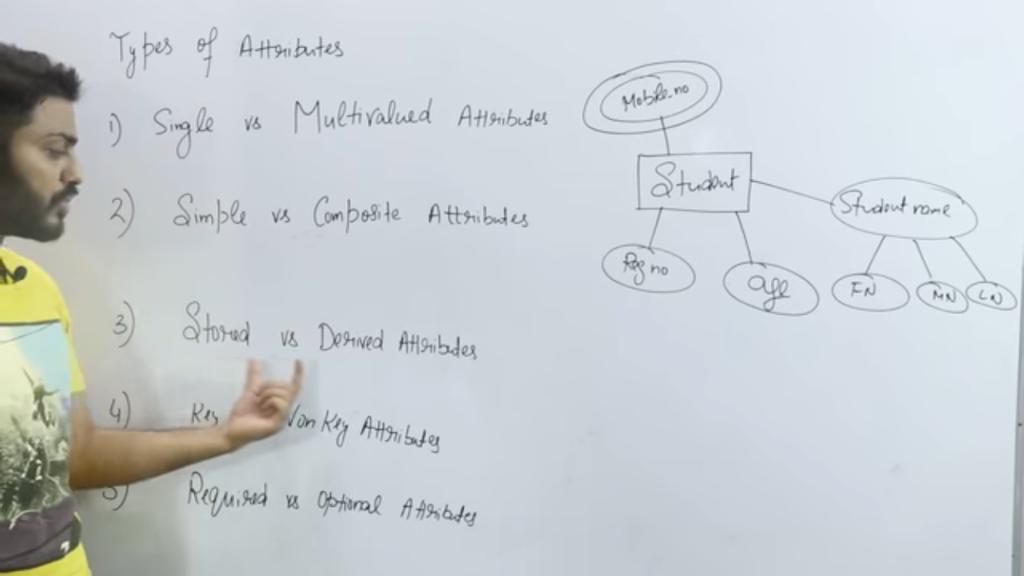 Types of Attributes
1) Single vs Multivalued Attributes
2) Simple vs Composite Attributes
3) Stored vs Derived Attributes
4) Key Non Key Attributes
5) Required vs Optional Attributes
Mobile.no
Student
Student name
Reg no
Age
FN
MN
LN